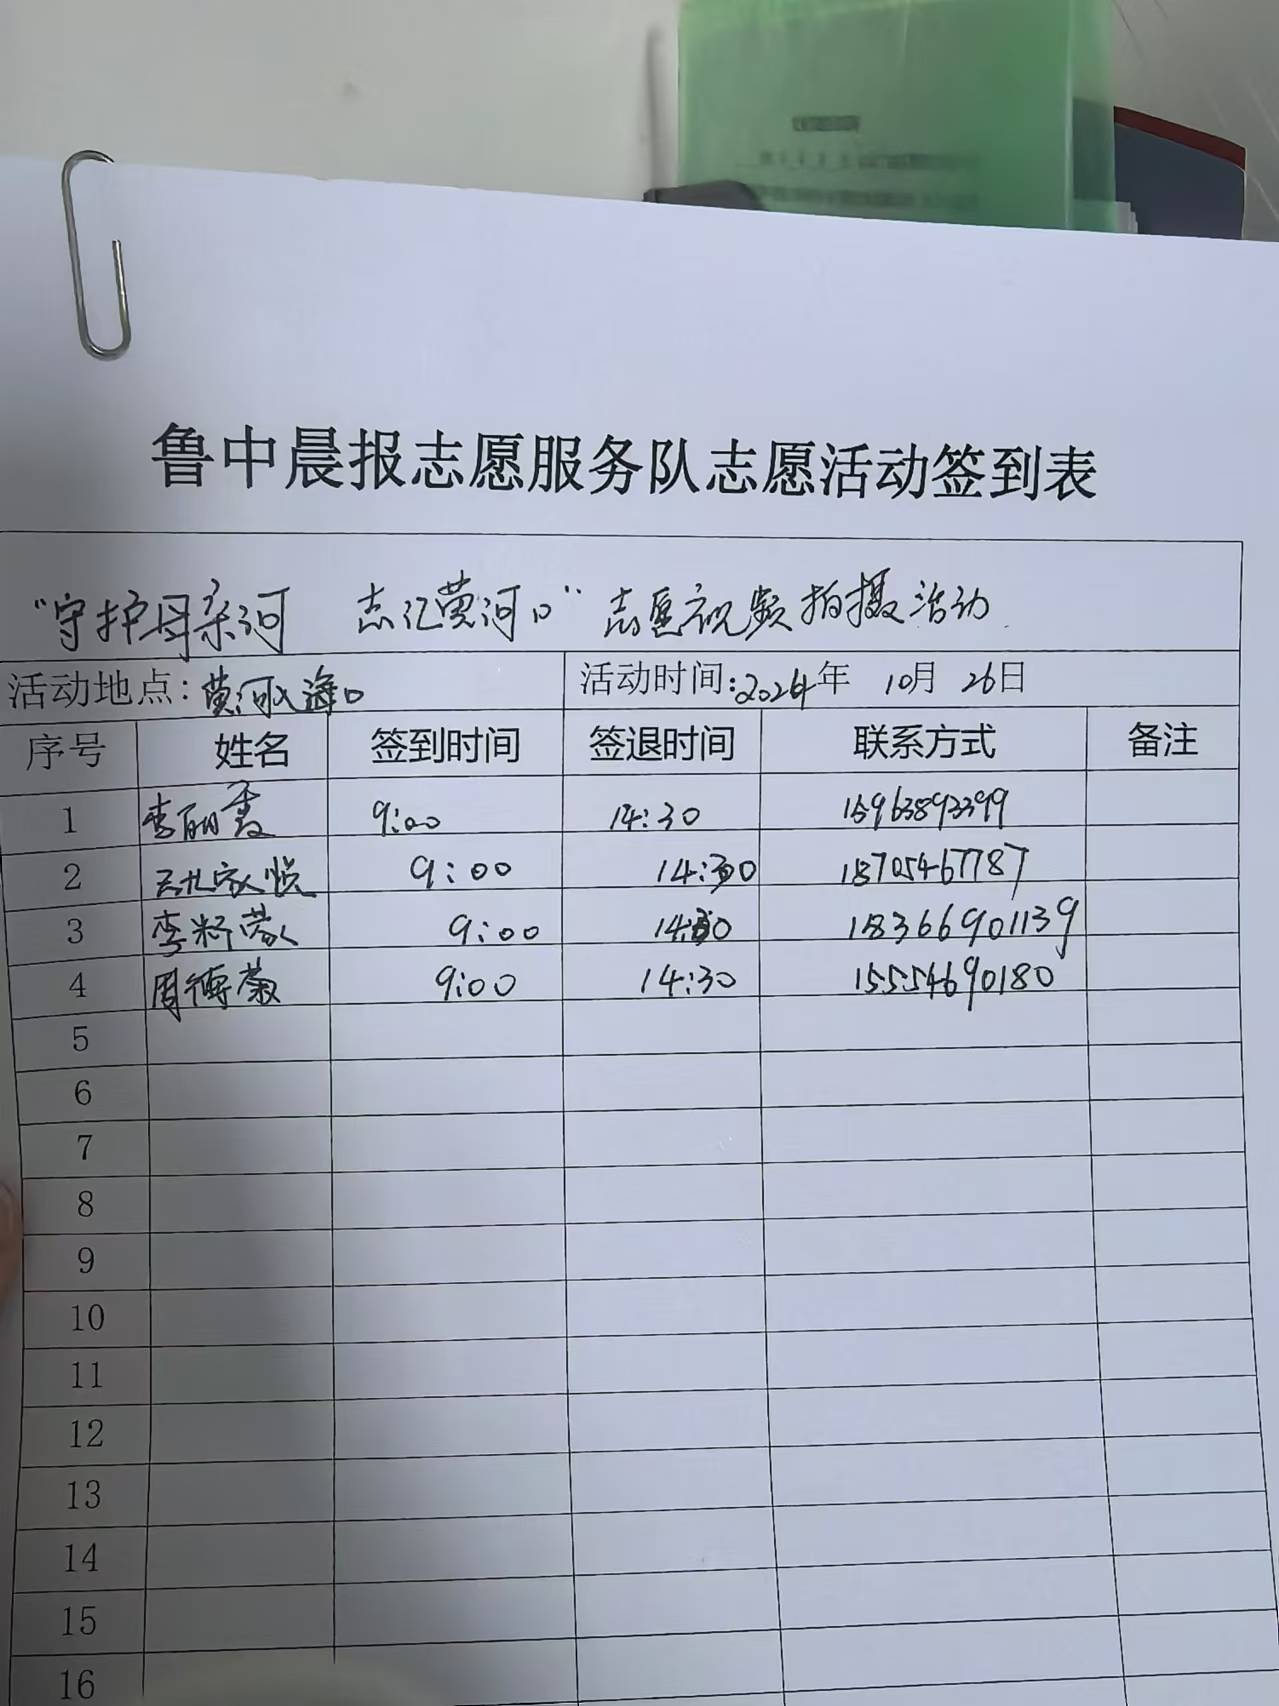 鲁中晨报志愿服务队志愿活动签到表
“守护母亲河 志汇黄河口”志愿视频拍摄活动
活动地点:黄河入海口 活动时间:2024年 10月 26日
序号 姓名 签到时间 签退时间 联系方式 备注
1 李丽霞 9:00 14:30 15963892399
2 9:00 14:30 18705467787
3 李 9:00 14:30 18366901139
4 周德 9:00 14:30 15554690180
5
6
7
8
9
10
11
12
13
14
15
16